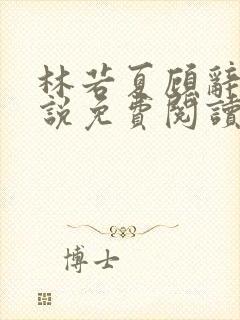 林若夏顾辭
說免費閱讀
博士